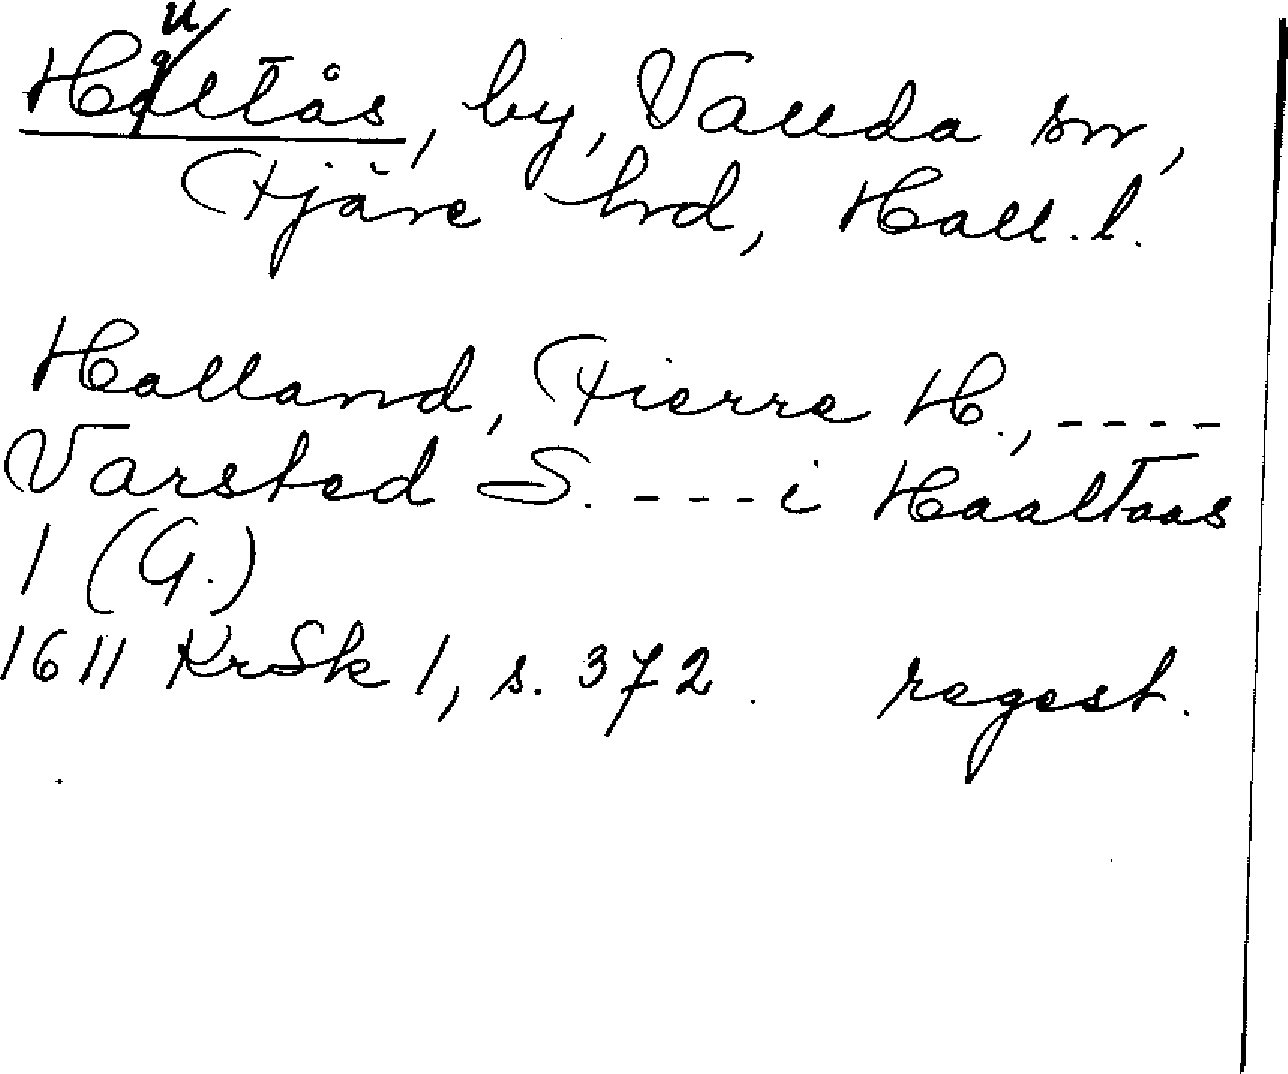 u
Håltås, by, Vallda sn,
Fjäre hrd, Hall. l.
Halland, Fierre H., ----
Varsted S. --- i Haaltaas
1 (G.)
1611 KrSk 1, s. 372. regest.